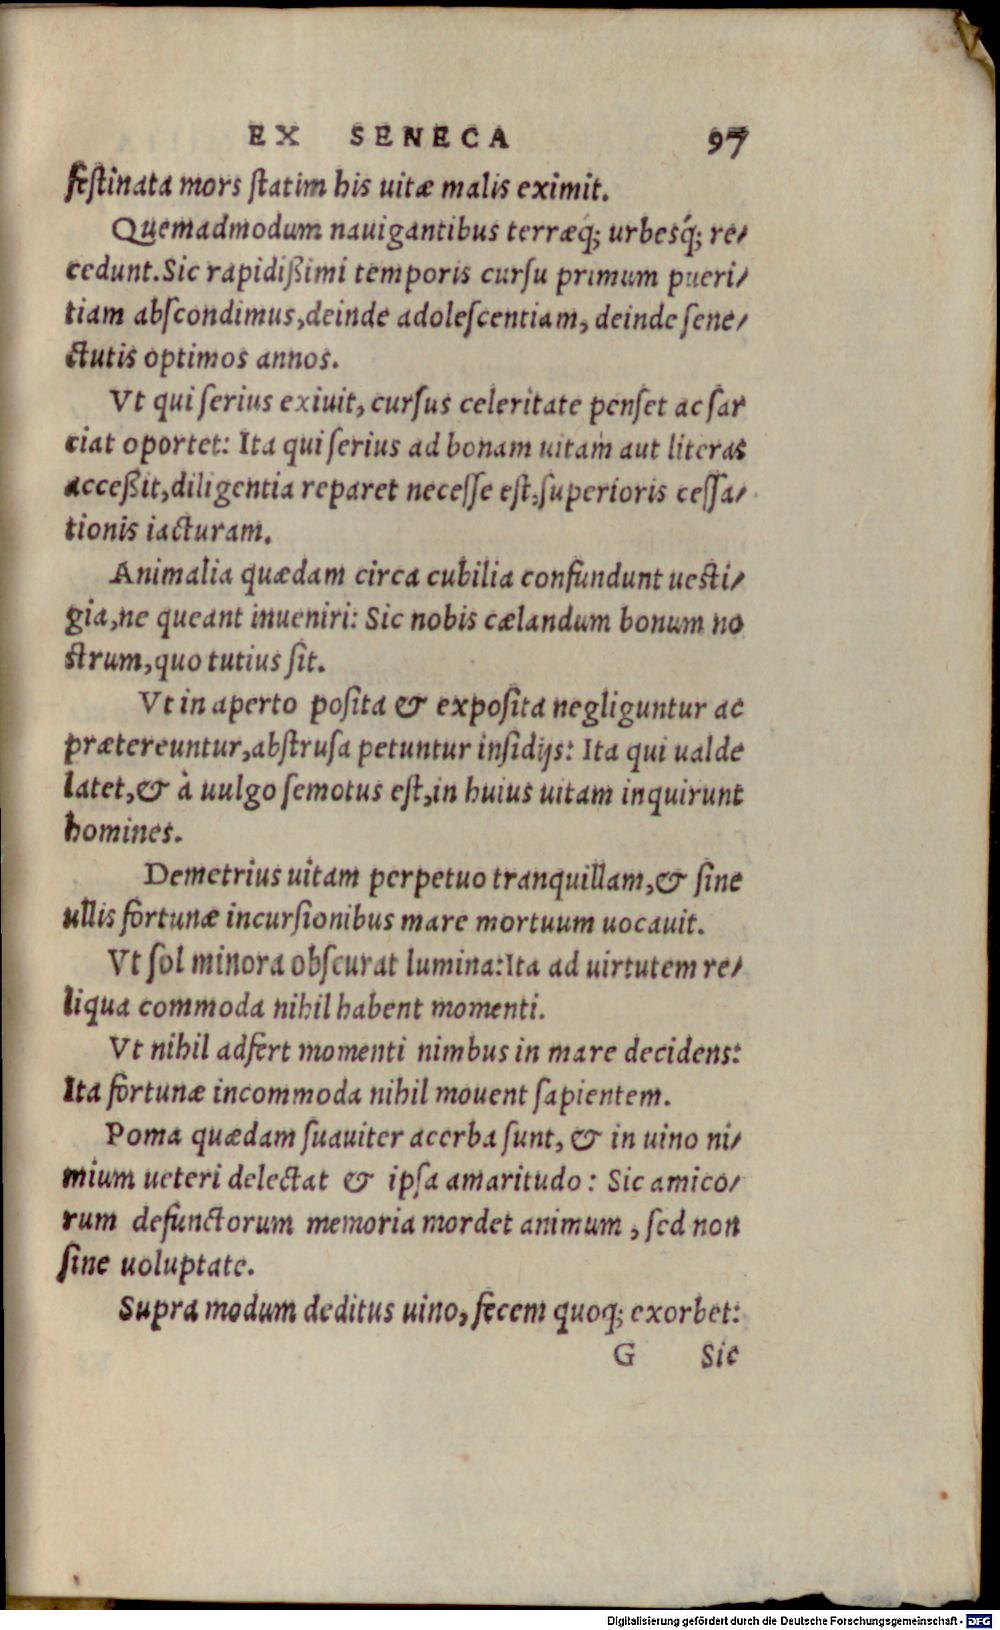 EX SENECA 97
feſtinata mors ſtatim his uitæ malis eximit.
Quemadmodum nauigantibus terræq́; urbesq́; re/
cedunt. Sic rapidißimi temporis curſu primum pueri/
tiam abſcondimus, deinde adoleſcentiam, deinde ſene/
ctutis optimos annos.
Vt qui ſerius exiuit, curſus celeritate penſet ac ſar
ciat oportet: Ita qui ſerius ad bonam uitam aut literas
acceßit, diligentia reparet neceſſe eſt, ſuperioris ceſſa/
tionis iacturam.
Animalia quædam circa cubilia confundunt ueſti/
gia, ne queant inueniri: Sic nobis cælandum bonum no
ſtrum, quo tutius ſit.
Vt in aperto poſita & expoſita negliguntur ac
prætereuntur, abſtruſa petuntur inſidijs: Ita qui ualde
latet, & à uulgo ſemotus eſt, in huius uitam inquirunt
homines.
Demetrius uitam perpetuo tranquillam, & ſine
ullis fortunæ incurſionibus mare mortuum uocauit.
Vt ſol minora obſcurat lumina: Ita ad uirtutem re/
liqua commoda nihil habent momenti.
Vt nihil adfert momenti nimbus in mare decidens:
Ita fortunæ incommoda nihil mouent ſapientem.
Poma quædam ſuauiter acerba ſunt, & in uino ni/
mium ueteri delectat & ipſa amaritudo: Sic amico/
rum defunctorum memoria mordet animum, ſed non
ſine uoluptate.
Supra modum deditus uino, fecem quoq; exorbet:
G Sic
Digitalisierung gefördert durch die Deutsche Forschungsgemeinschaft - DFG